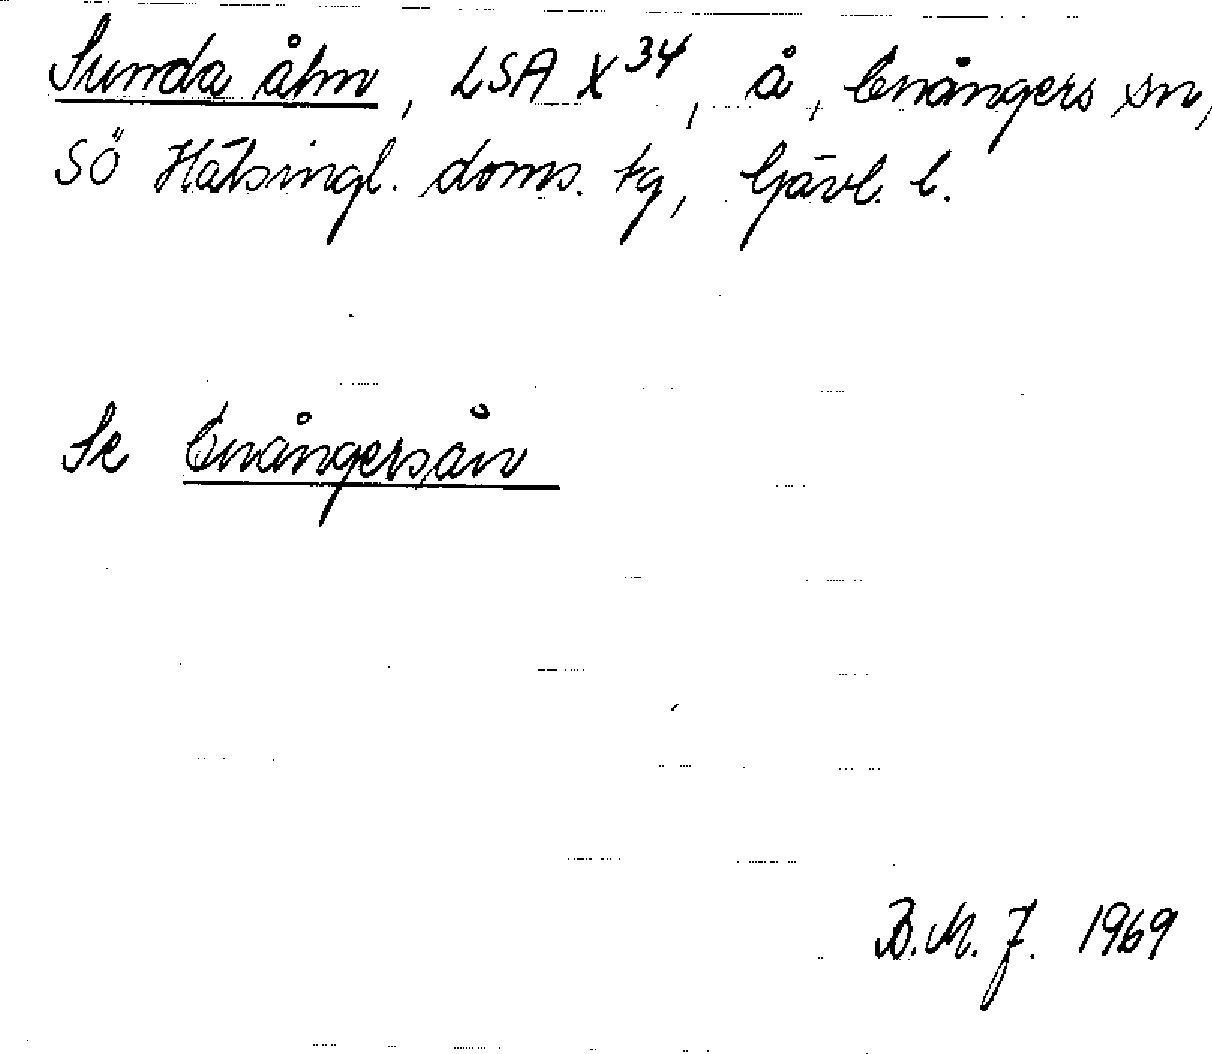 Sunda åhn, LSA X³⁴, å, Enångers sn,
SÖ Hälsingl. doms. tg, Gävl. l.
Se Enångersån
B.M.J. 1969